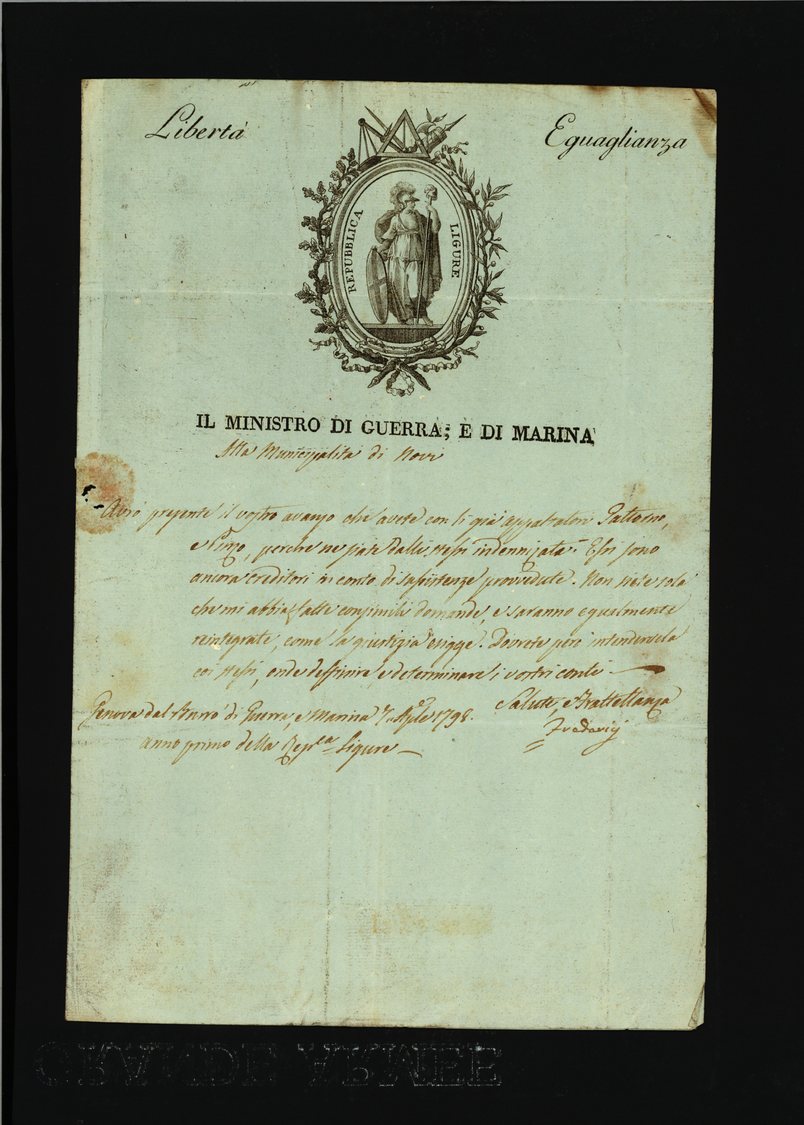 Libertà
Eguaglianza
REPUBBLICA LIGURE
IL MINISTRO DI GUERRA, E DI MARINA
Alla Municipalità di Novi
Avrò presente il vostro avanzo che avete con li già appaltatori
e, perchè ne siate dalli stessi indennizata. Essi sono
ancora creditori in conto di sussistenze provvedute. Non siete sola
che mi abbia fatte consimili domande, e saranno egualmente
reintegrate, come la giustizia esigge. Dovrete però intendervela
coi stessi, onde deffinire, e determinare i vostri conti
Salute, e Frattellanza
Genova dal Burò di Guerra, e Marina 7. Aple 1798.
anno primo della Repca Ligure
GRANDE ARMEE